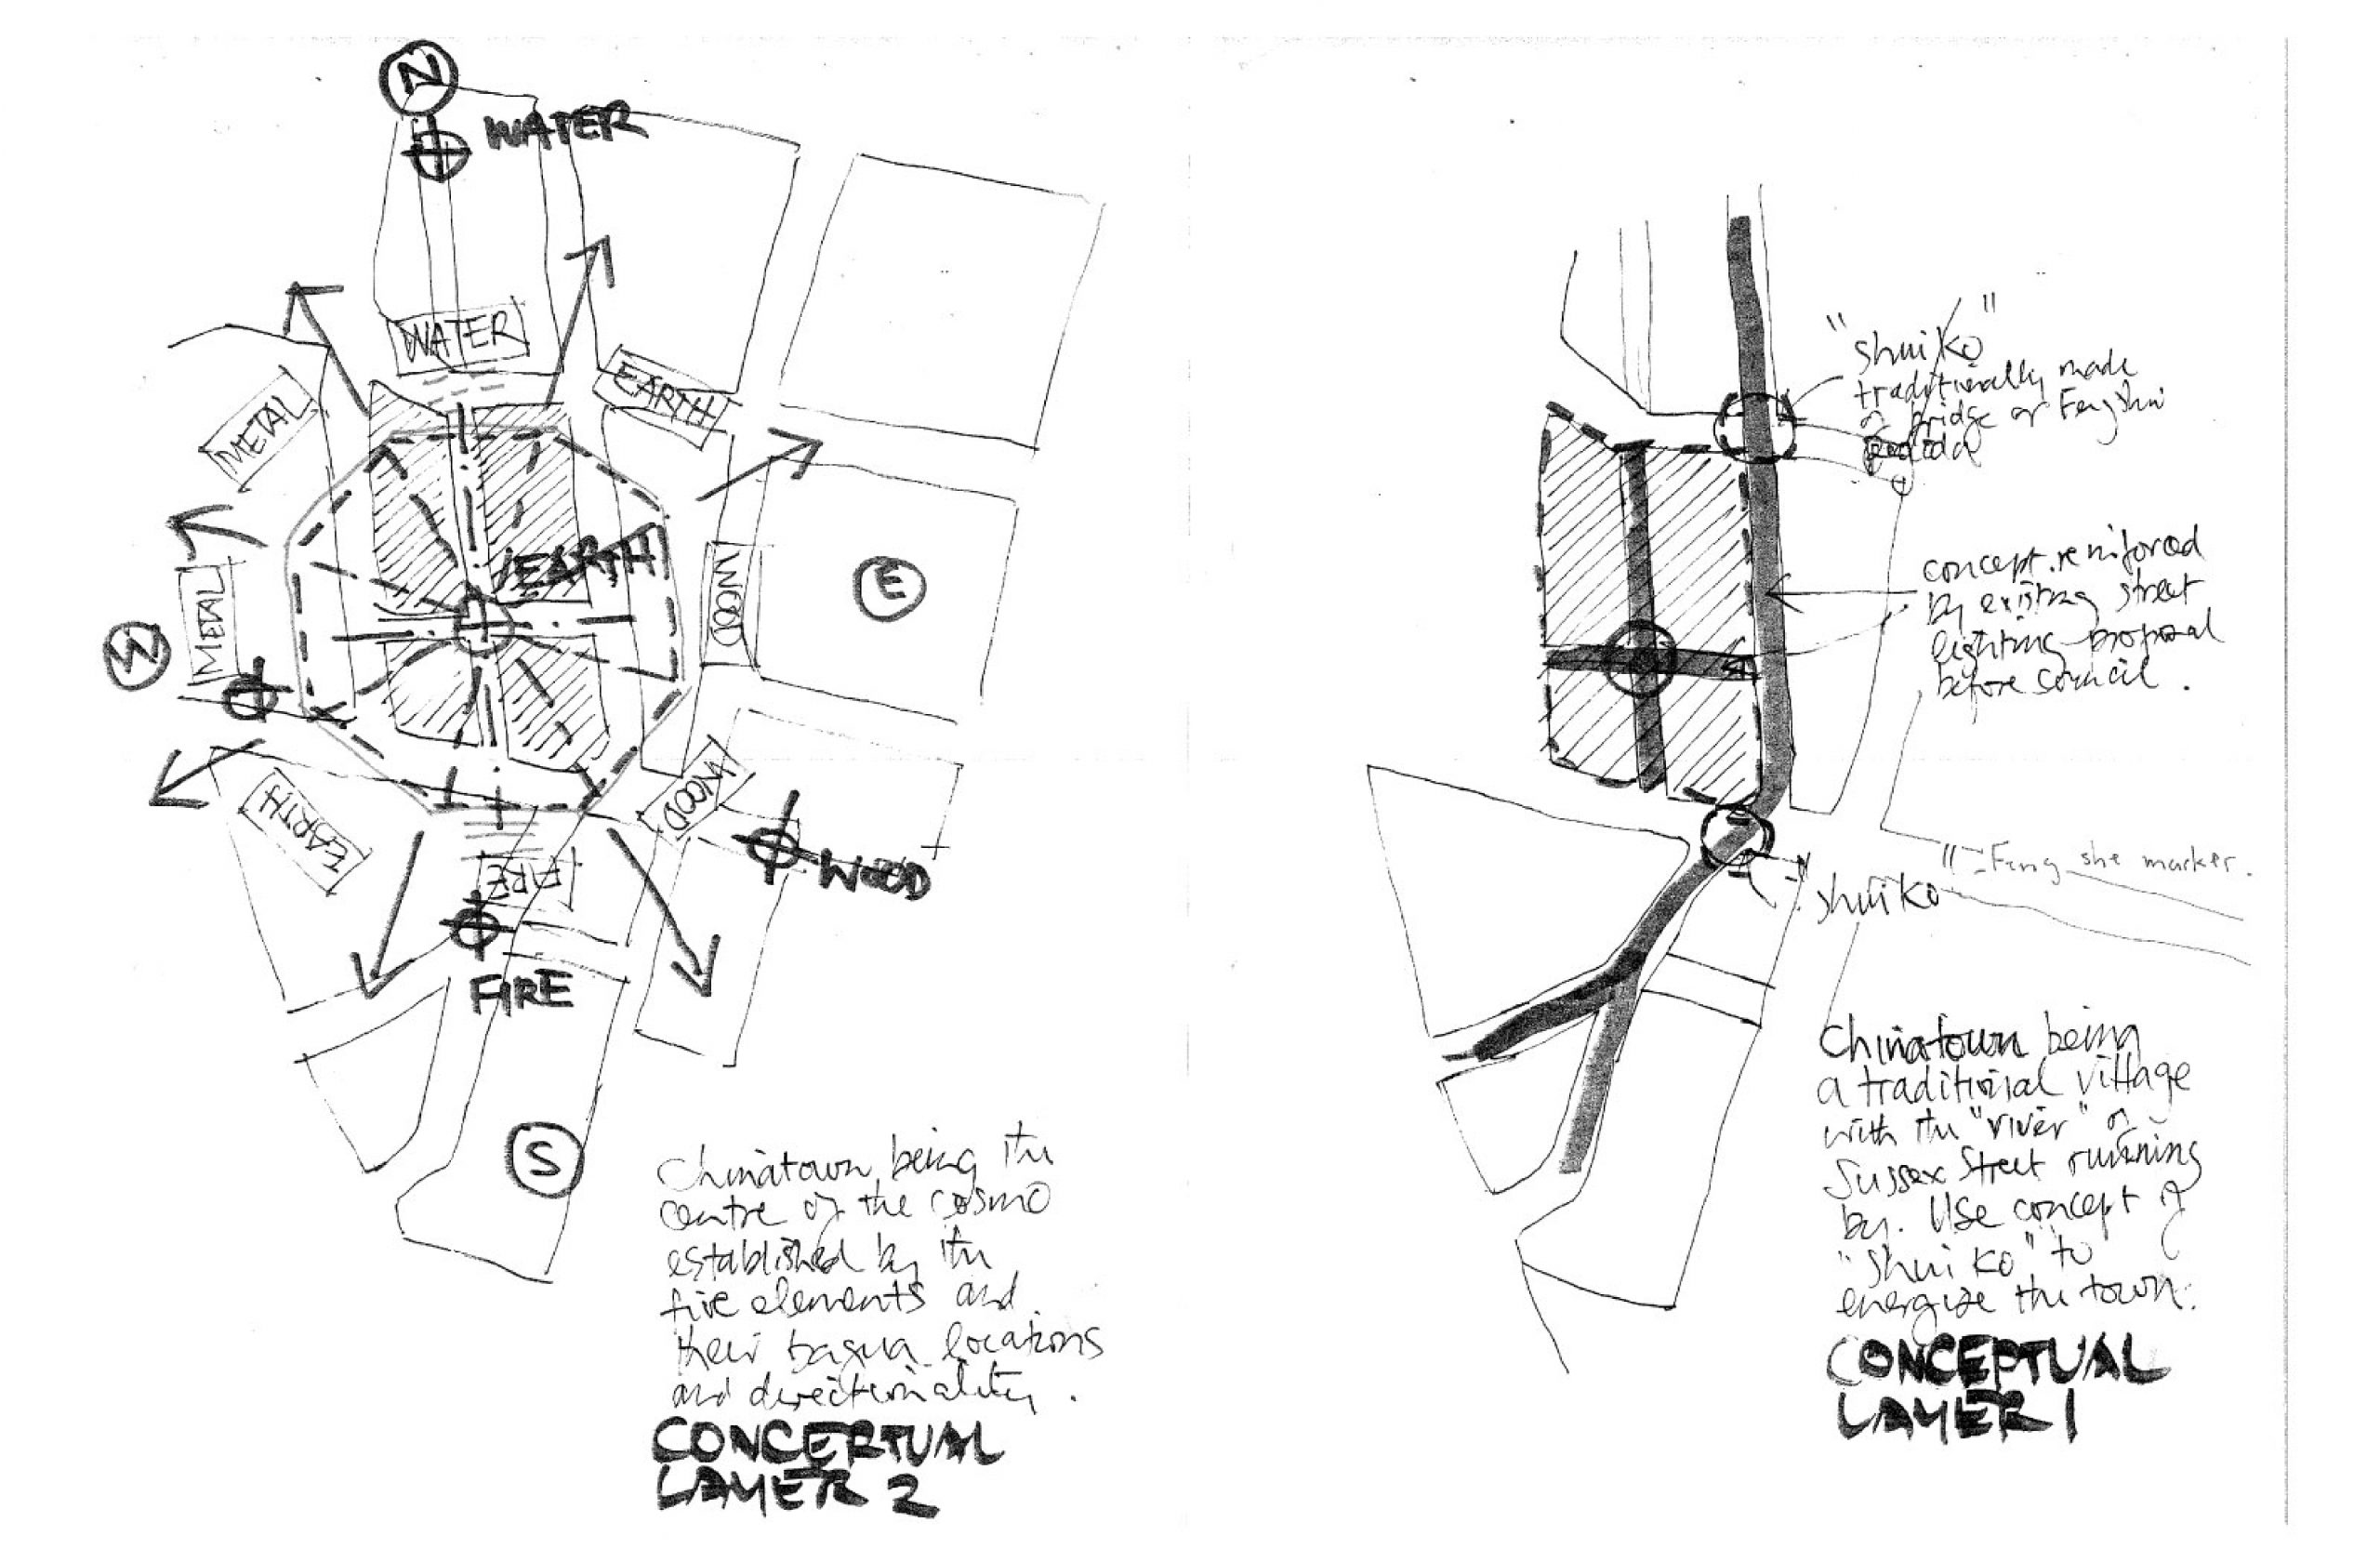 N
WATER
WATER
EARTH
METAL
EARTH
WOOD
E
METAL
W
WOOD
WOOD
EARTH
FIRE
FIRE
S
Chinatown being the
centre of the cosmo
established by the
five elements and
their bagua locations
and directionality.
CONCEPTUAL
LAYER 2
"Shui Ko"
traditionally made
of bridge or Fengshui
concept reinforced
by existing street
lighting proposal
before council.
Feng she marker.
"Shui Ko"
Chinatown being
a traditional village
with the "river" of
Sussex Street running
by. Use concept of
"Shui Ko" to
energize the town.
CONCEPTUAL
LAYER 1